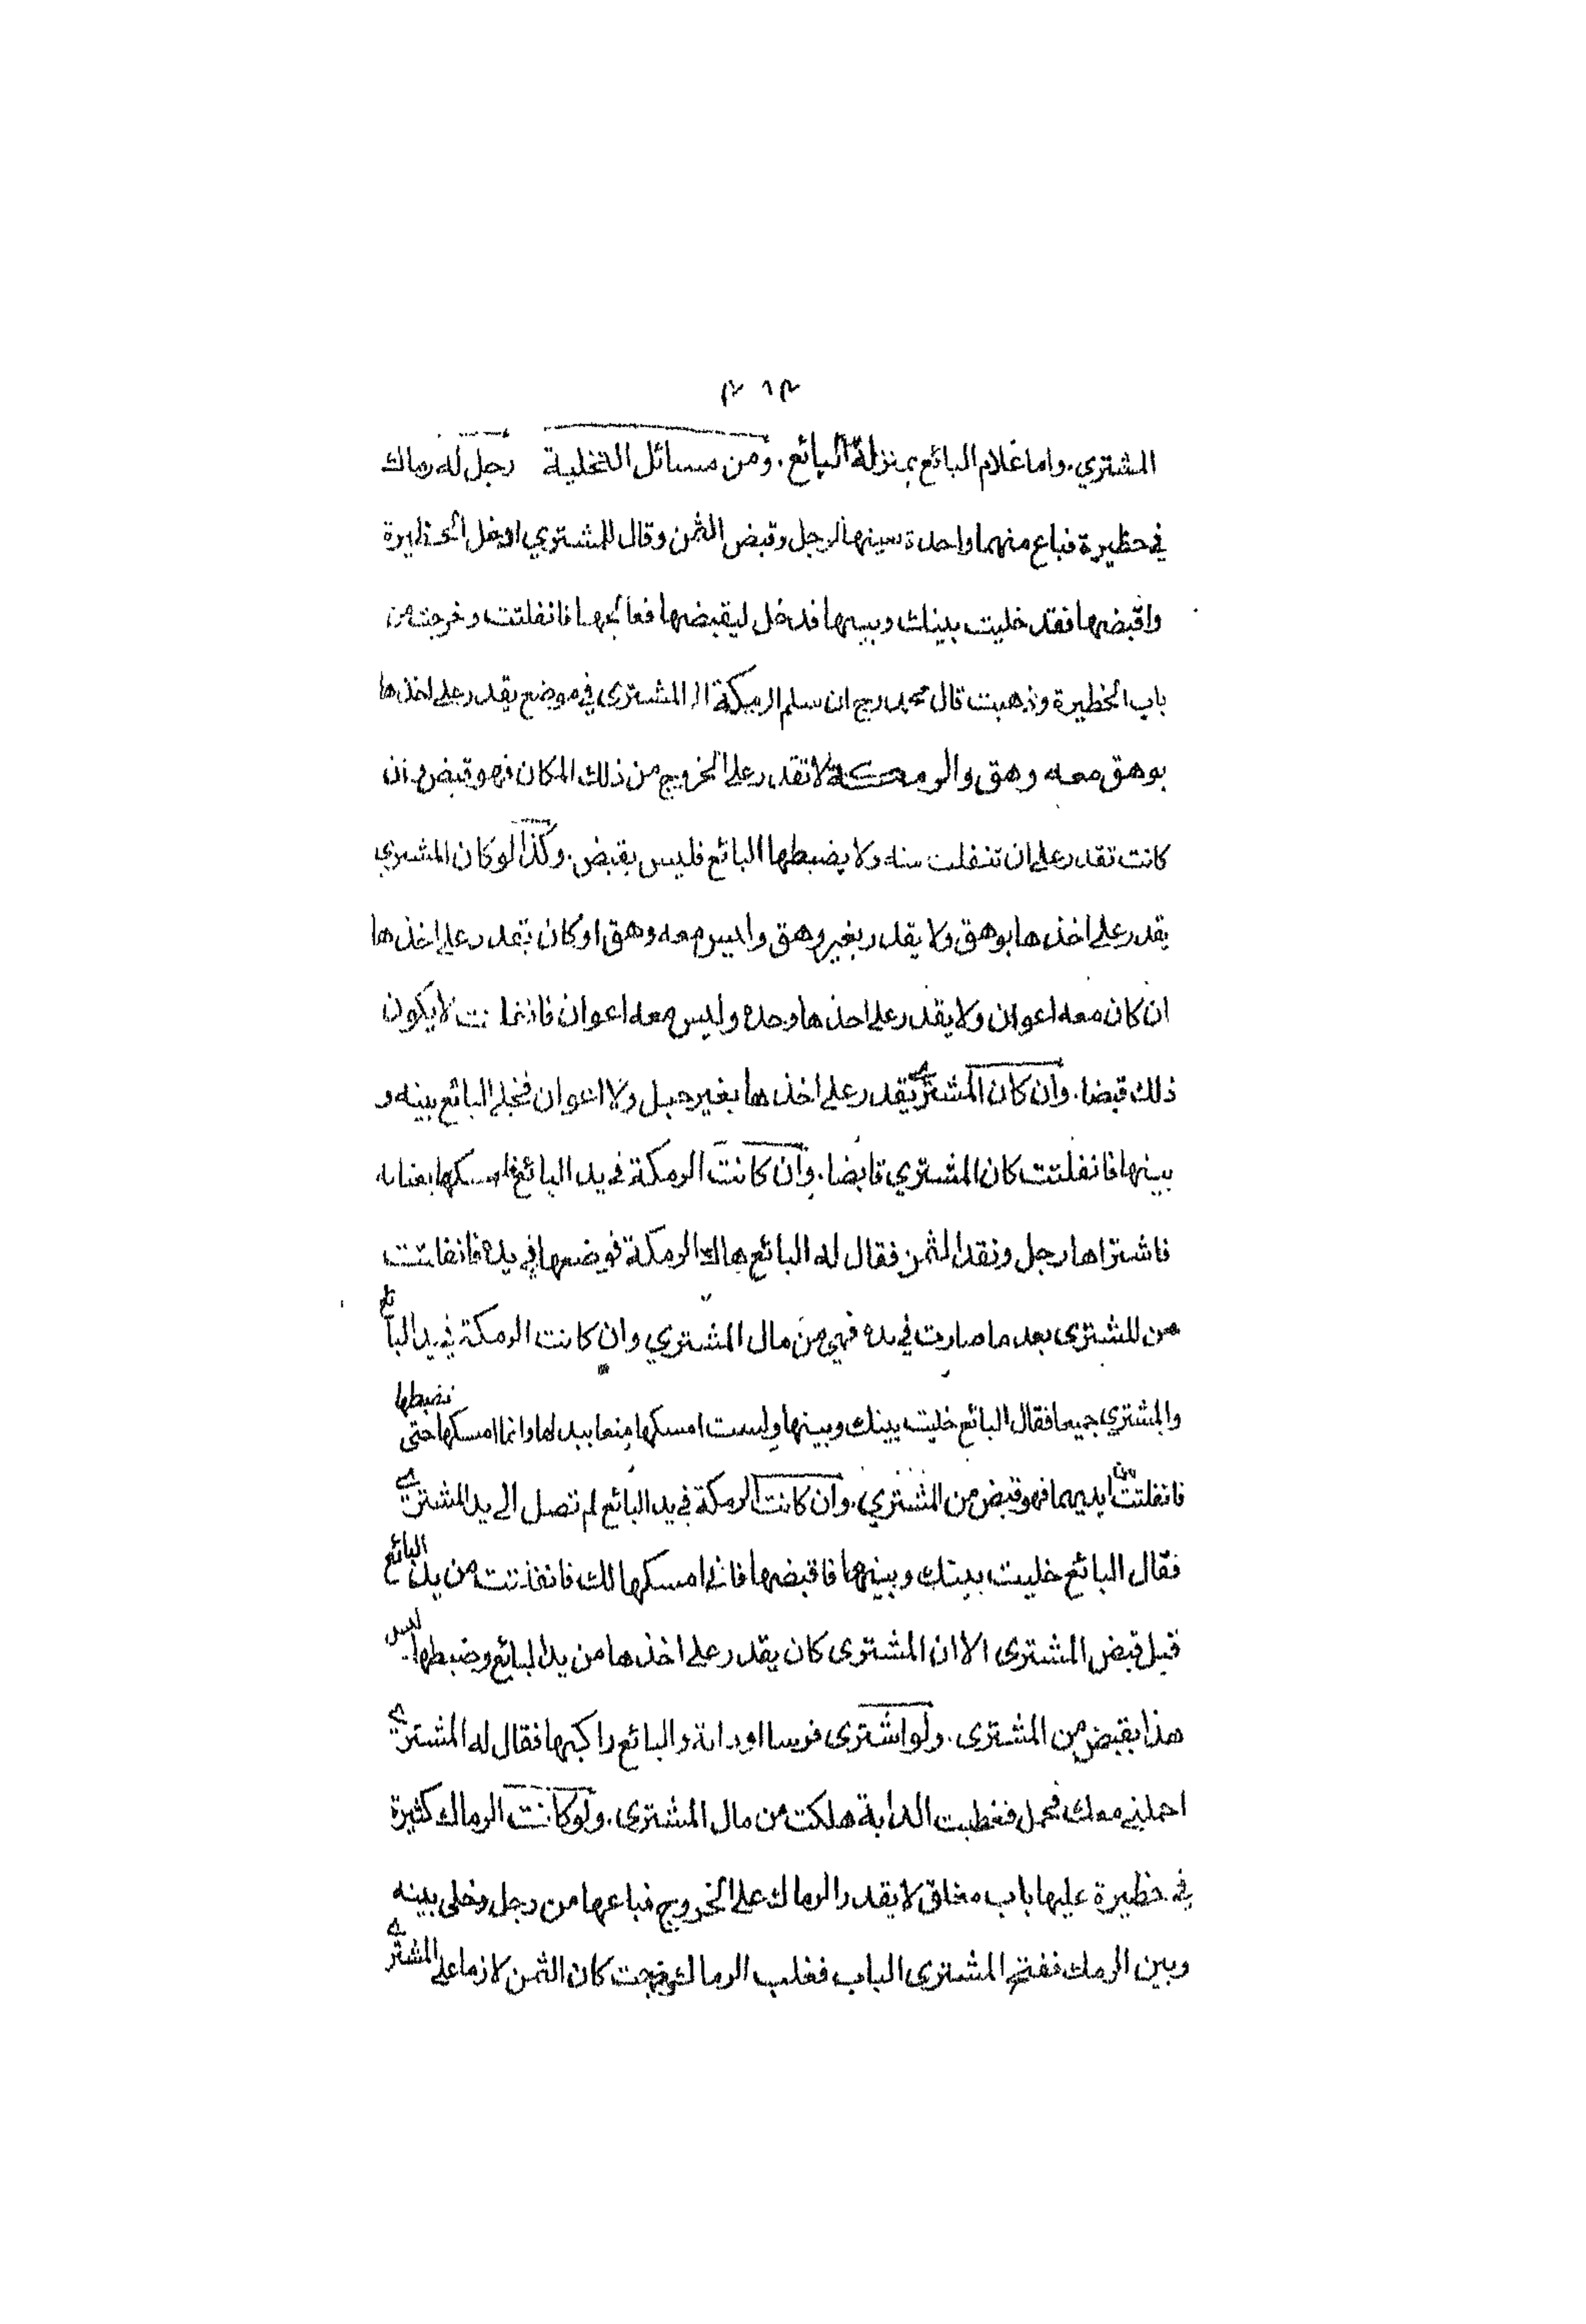 ٣١٣
المشتري. واما غلام البائع بمنزلة البائع. ومن مسائل التخلية رجل له رماك
في حظيرة فباع منهما واحدة بعينها لرجل وقبض الثمن وقال للمشتري ادخل الحظيرة
واقبضها فقد خليت بينك وبينها فدخل ليقبضها فعالجها فانفلتت وخرجت من
باب الحظيرة وذهبت قال محمد رح ان سلم الرمكة الى المشترى في موضع يقدر على اخذها
بوهق معه وهق والرمكة لا تقدر على الخروج من ذلك المكان فهو قبض وان
كانت تقدر على ان تنفلت منه ولا يضبطها البائع فليس بقبض. وكذا لو كان المشترى
يقدر على اخذها بوهق ولا يقدر بغير وهق وليس معه وهق او كان يقدر على اخذها
ان كان معه اعوان ولا يقدر على اخذها وحده وليس معه اعوان فانفلتت لا يكون
ذلك قبضا. وان كان المشترى يقدر على اخذها بغير حبل ولا اعوان فخلى البائع بينه و
بينها فانفلتت كان المشتري قابضا. وان كانت الرمكة في يد البائع فامسكها بعنانه
فاشتراها رجل ونقد الثمن فقال له البائع هاك الرمكة فوضعها في يده فانفلتت
من المشترى بعد ما صارت في يده فهي من مال المشتري وان كانت الرمكة في يد البائع
والمشتري جميعا فقال البائع خليت بينك وبينها ولست امسكها منعا لها وانما امسكها حتى تضبطها
فانفلتت من ايديهما فهو قبض من المشتري. وان كانت الرمكة في يد البائع لم تصل الى يد المشترى
فقال البائع خليت بينك وبينها فاقبضها فانى امسكها لك فانفلتت من يد البائع
قبل قبض المشترى الا ان المشترى كان يقدر على اخذها من يد البائع وضبطها ليس
هذا بقبض من المشترى. ولو اشترى فرسا او دابة والبائع راكبها فقال له المشترى
احملني معك فحمل فعطبت الدابة هلكت من مال المشترى. ولو كانت الرماك كثيرة
في حظيرة عليها باب مغلق لا يقدر الرماك على الخروج فباعها من رجل وخلى بينه
وبين الرمك ففتح المشترى الباب فغلب الرماك وخرجت كان الثمن لازما على المشترى